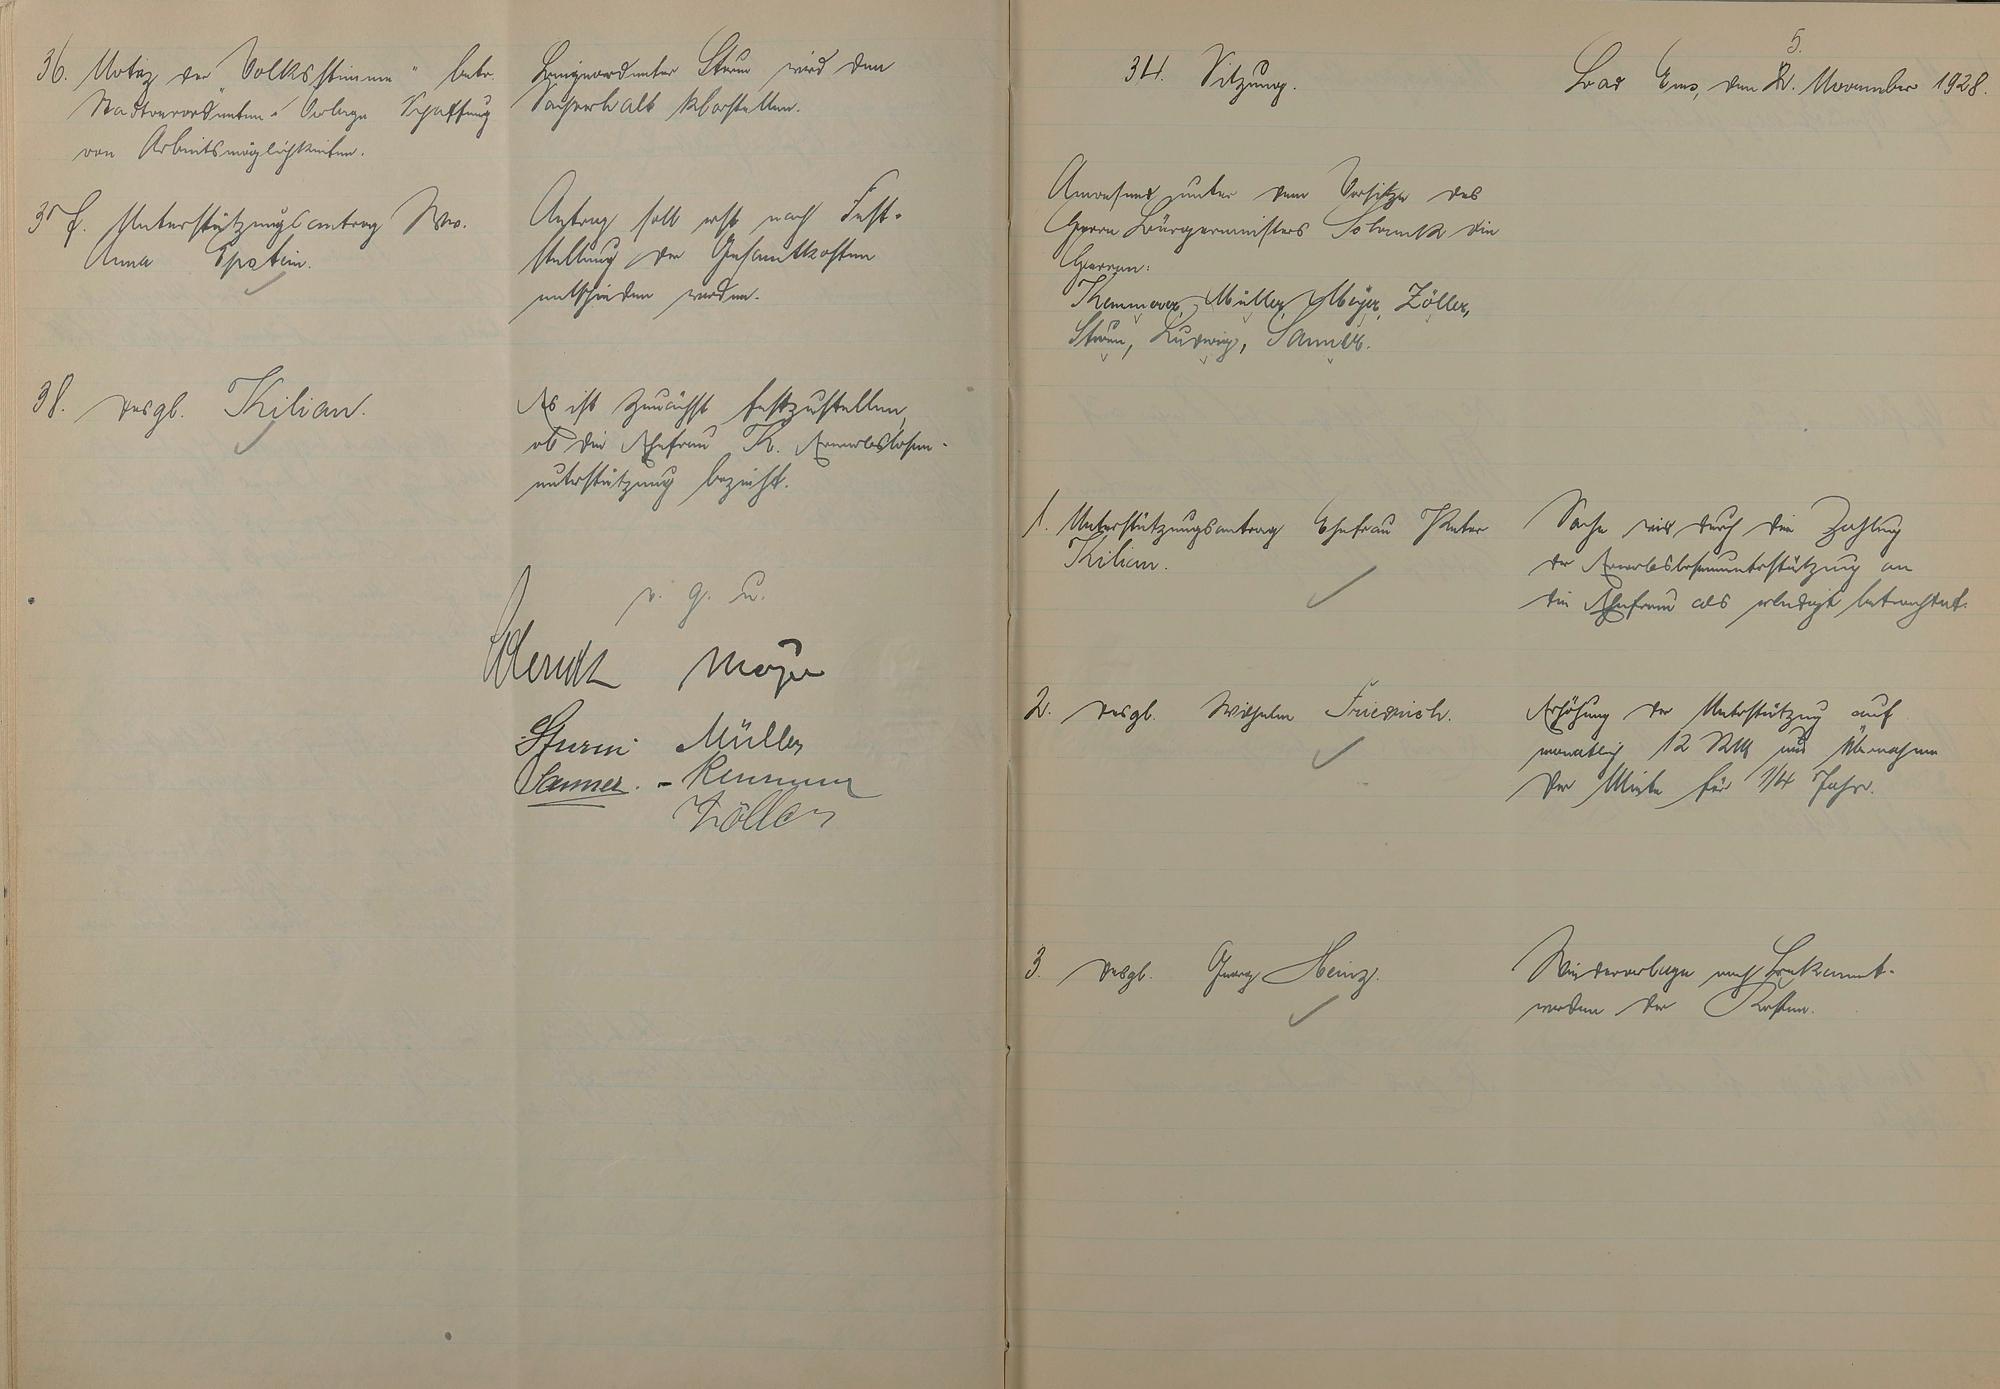 36. Notiz der „Volksstimme" betr.
Stadtverordneten-Vorlage Schaffung
von Arbeitsmöglichkeiten.
Beigeordneter Sturm wird den
Sachverhalt klarstellen.
37. Unterstützungsantrag Ww.
Anna Epstein.
Antrag soll erst nach Fest-
stellung der Gesamtkosten
entschieden werden.
38. desgl. Kilian.
Es ist zunächst festzustellen,
ob die Ehefrau K. Erwerbslosen-
unterstützung bezieht.
v. g. u.
Mayer
Sturm Müller
Sanner. -
Zöller
34. Sitzung.
5.
Bad Ems, den 2. November 1928.
Anwesend unter dem Vorsitze des
Herrn Bürgermeisters die
Herren:
Kemmerer, Müller, Meyer, Zöller,
Sturm, Ludwig, Sanner.
1. Unterstützungsantrag Ehefrau Peter
Kilian.
Sache wird durch die Zahlung
der Erwerbslosenunterstützung an
die Ehefrau als erledigt betrachtet.
2. desgl. Wilhelm Friedrich.
Erhöhung der Unterstützung auf
monatlich 12 RM und Übernahme
der Miete für 1/4 Jahr.
3. desgl. Georg Heinz.
Wiedervorlage nach Bekannt-
werden der Kosten.